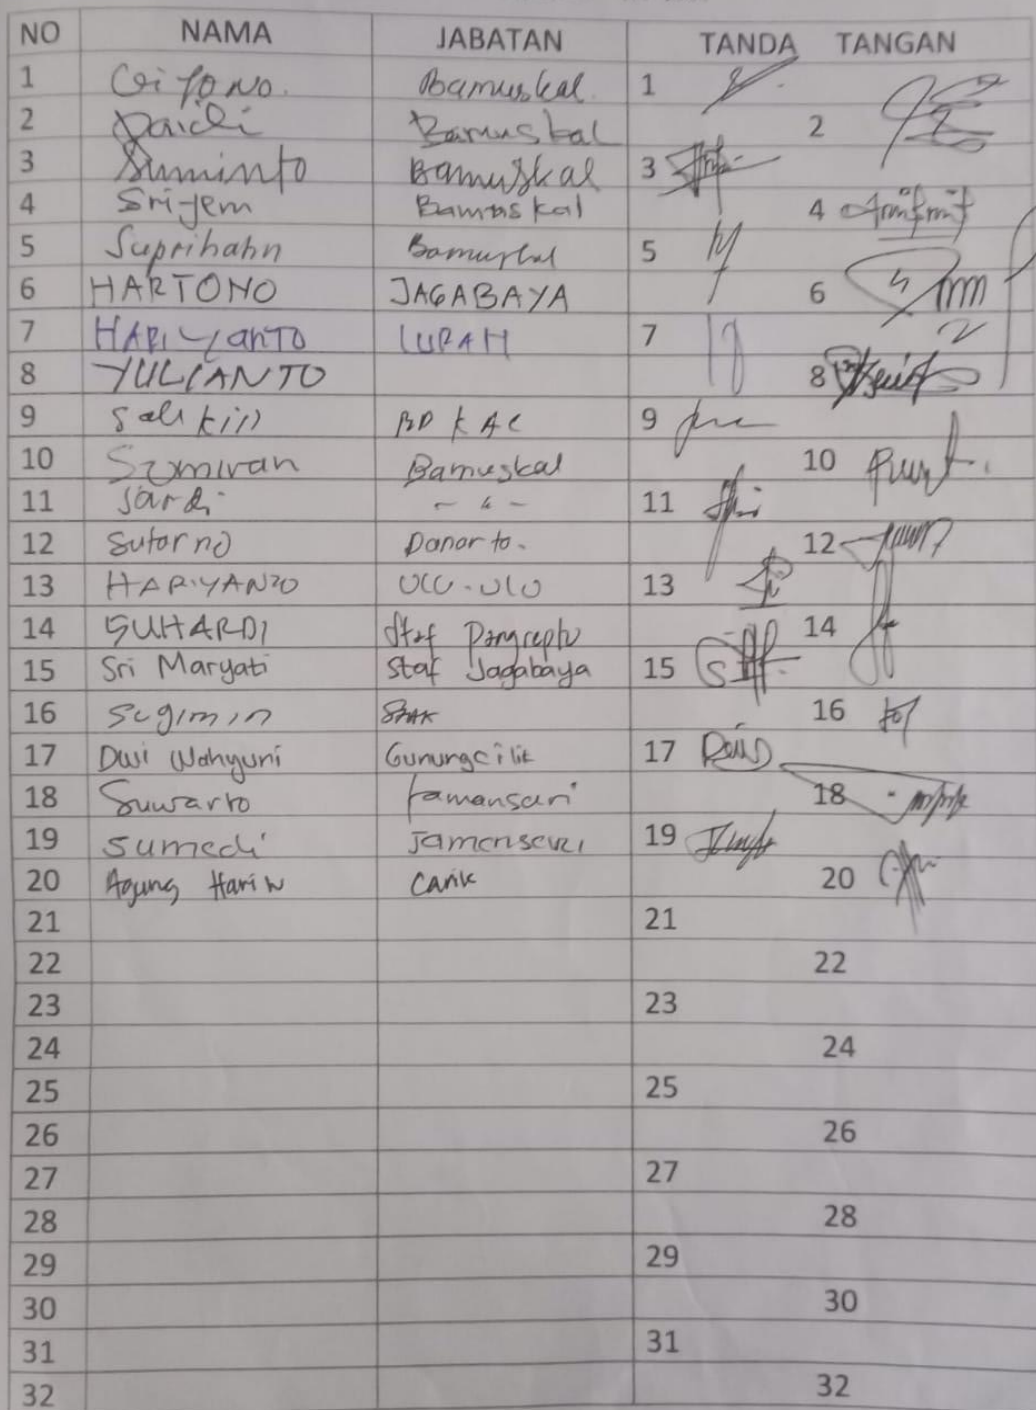 NO NAMA JABATAN TANDA TANGAN
1 Bamuskal. 1
2 Paidi Bamuskal 2
3 Suminto Bamuskal 3
4 Srijem Bamuskal 4
5 Suprihatin Bamuskal 5
6 HARTONO JAGABAYA 6
7 HARIYANTO LURAH 7
8 YULIANTO 8
9 9
10 Bamuskal 10
11 Sardi - " - 11
12 Sutarno Danarto. 12
13 HARIYANTO ULU-ULU 13
14 SUHARDI Staf 14
15 Sri Maryati Staf Jagabaya 15
16 Sugimin 16
17 Dwi Wahyuni Gunungcilik 17
18 Suwarto Tamansari 18
19 Sumedi Tamansari 19
20 Agung Hari Carik 20
21 21
22 22
23 23
24 24
25 25
26 26
27 27
28 28
29 29
30 30
31 31
32 32